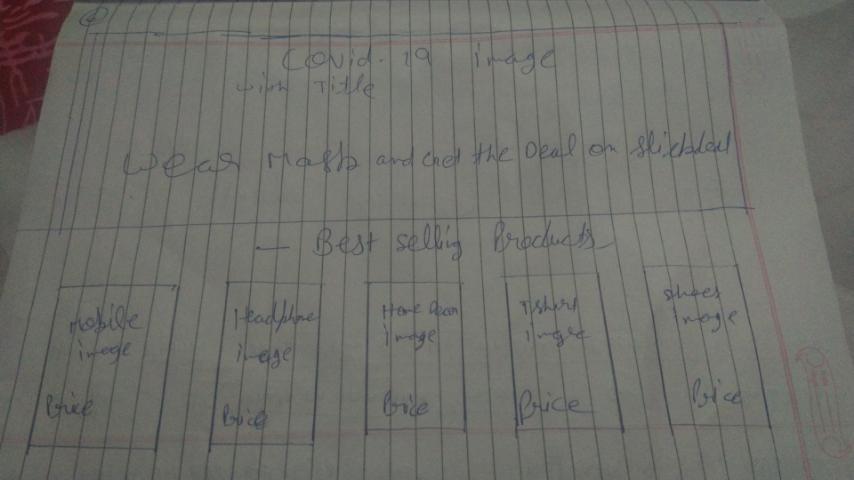 Covid-19 image
with Title
Wear Mask and Get the Deal on Slickdeal
Best selling Products
Mobile
image
Price
Headphone
image
Price
Home Decor
image
Price
Tshirt
image
Price
Shoes
image
Price